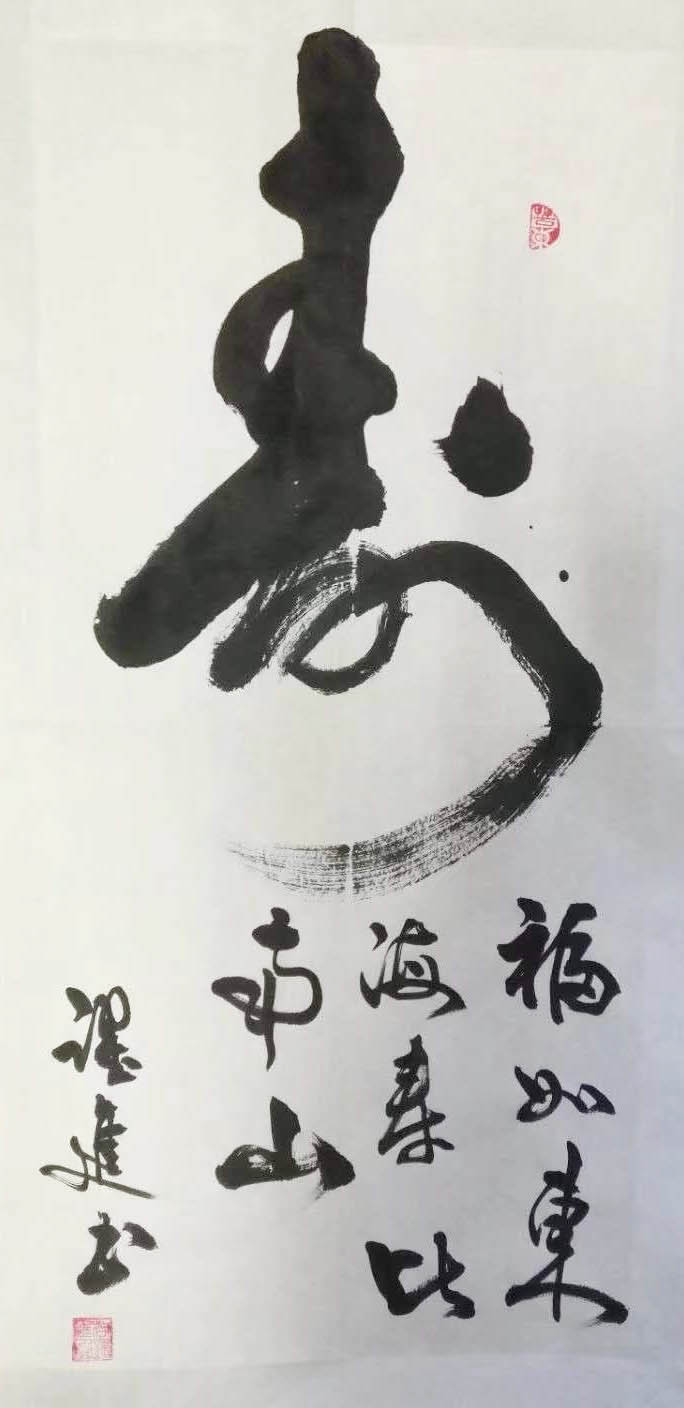 寿
福如東
海寿比
南山
躍進书